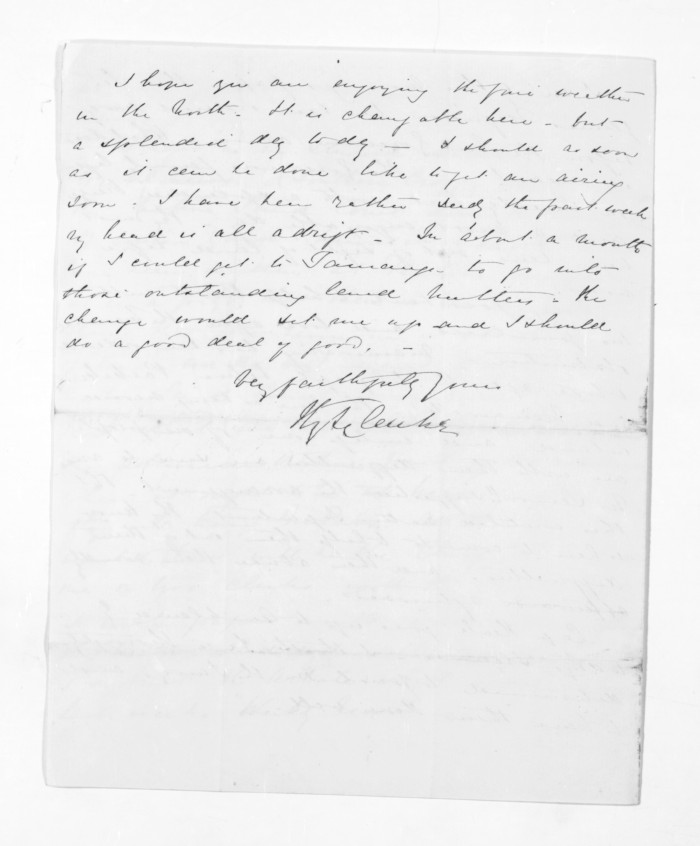 I hope you are enjoying the fine weather
in the North. It is changeable here - but
a splendid day to day - I should as soon
as it can be done like to get an airing
soon. I have been rather seedy the past week
my head is all adrift - In about a month
if I could get to Tauranga to go into
those outstanding land matters - the
change would set me up and I should
do a good deal of good. -
Very faithfully yours
Clarke